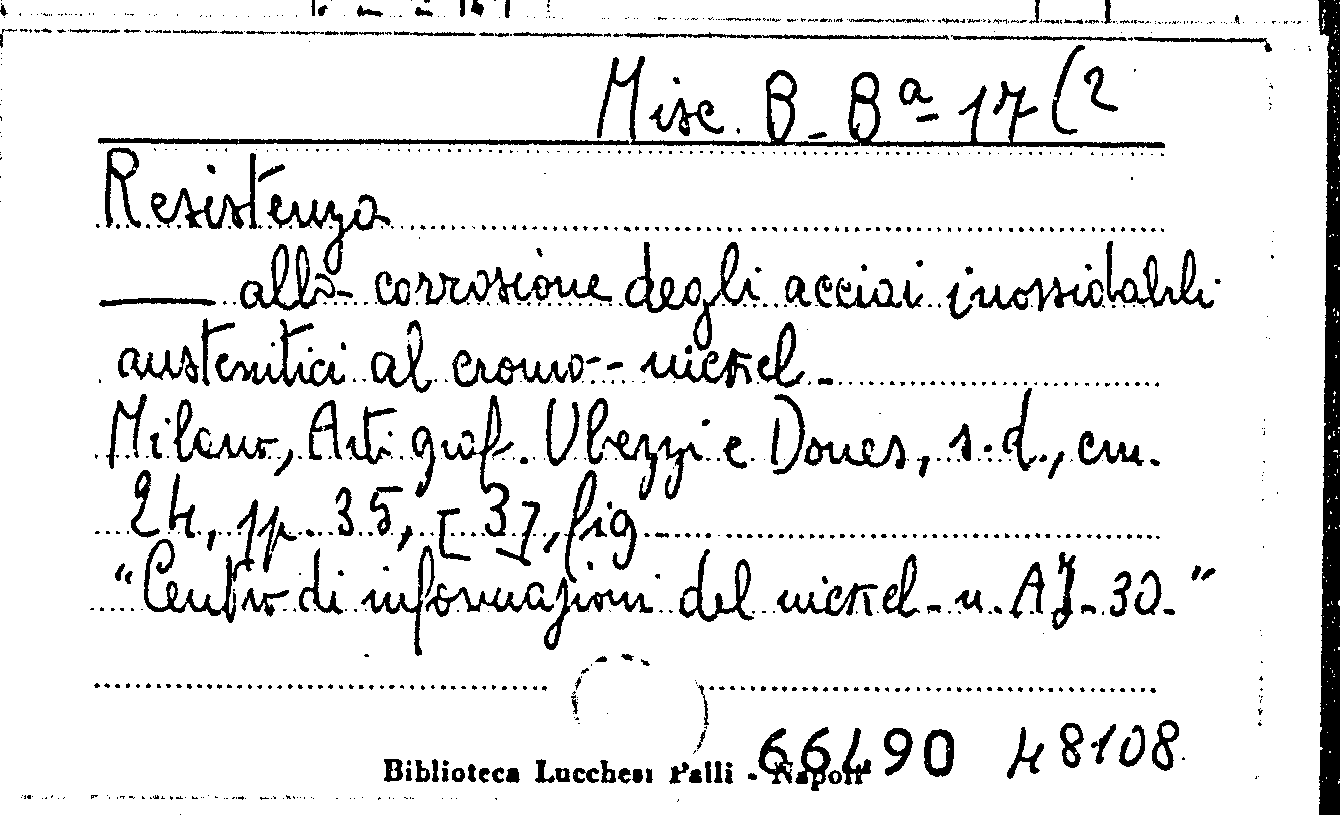 Misc. B - Bª 17 (2
Resistenza
—— alla corrosione degli acciai inossidabili
austenitici al cromo-nickel -
Milano, Arti graf. Ubezzi e Dones, s.d., cm.
24, pp. 35, [3], fig
"Centro di informazioni del nickel - n. AJ - 30."
66490 48108
Biblioteca Lucchesi Palli - Napoli